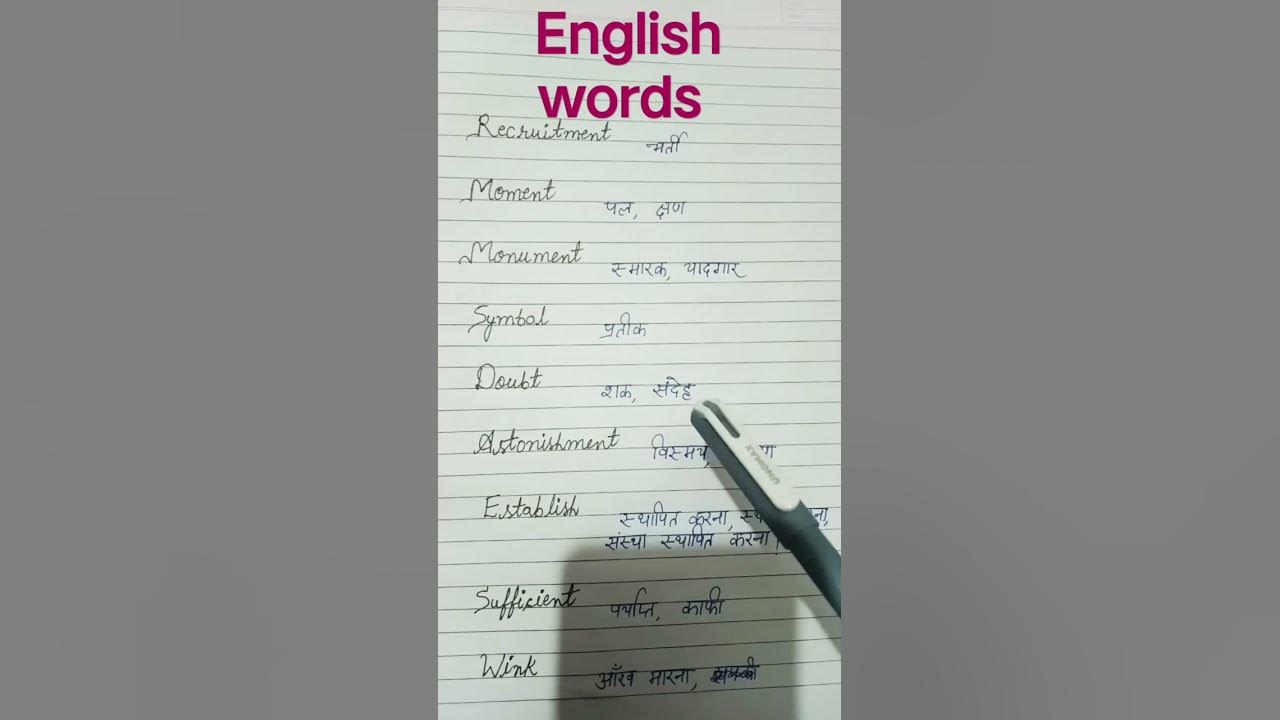 English
words
Recruitment भर्ती
Moment पल, क्षण
Monument स्मारक, यादगार
Symbol प्रतीक
Doubt शक, संदेह
Astonishment विस्मय,
Establish स्थापित करना,
संस्था स्थापित करना
Sufficient पर्याप्त, काफी
Wink आँख मारना,
UNOMAX